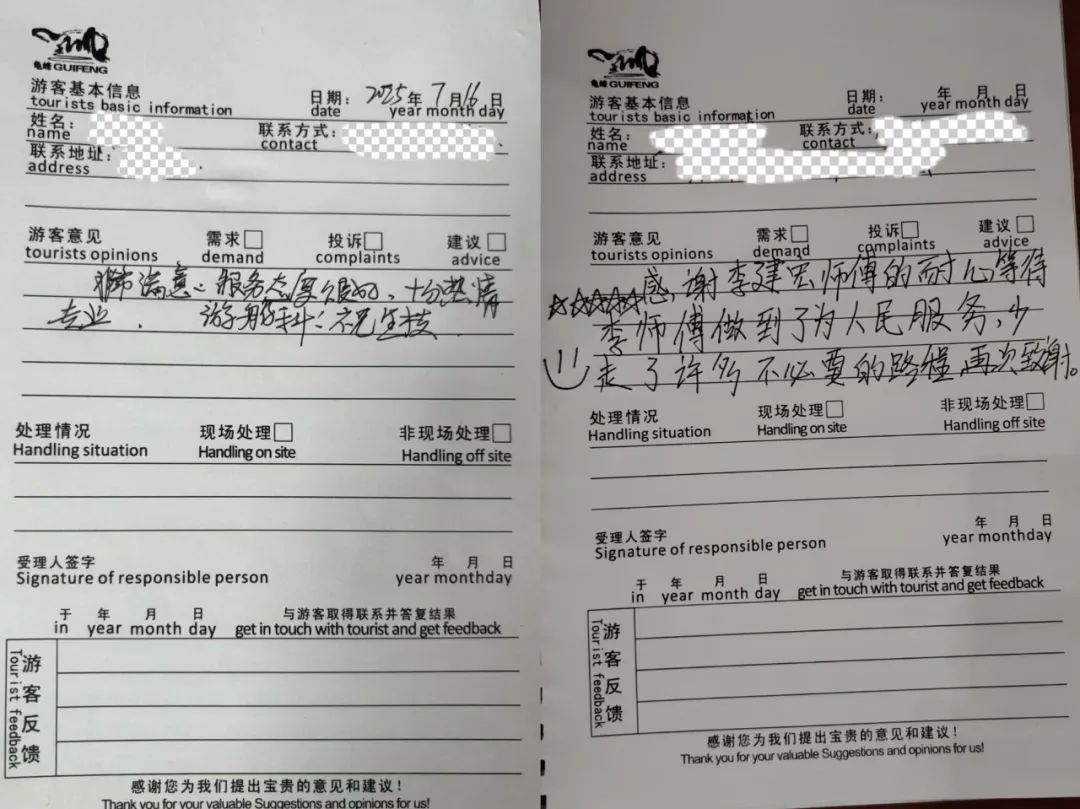 龟峰 GUIFENG
游客基本信息
tourists basic information
日期： 2025年7月16日
date year month day
姓名：
name
联系方式：
contact
联系地址：
address
游客意见 需求 投诉 建议
tourists opinions demand complaints advice
非常满意、服务态度很好、十分热情
专业．
处理情况 现场处理 非现场处理
Handling situation Handling on site Handling off site
受理人签字 年 月 日
Signature of responsible person year monthday
于 年 月 日 与游客取得联系并答复结果
in year month day get in touch with tourist and get feedback
游客反馈
Tourist feedback
感谢您为我们提出宝贵的意见和建议！
Thank you for your valuable Suggestions and opinions for us!
龟峰 GUIFENG
游客基本信息
tourists basic information
日期： 年 月 日
date year month day
姓名：
name
联系方式：
contact
联系地址：
address
游客意见 需求 投诉 建议
tourists opinions demand complaints advice
☆☆☆☆☆感谢李建宏师傅的耐心等待
李师傅做到了为人民服务，少
走了许多不必要的路程再次致谢。
处理情况 现场处理 非现场处理
Handling situation Handling on site Handling off site
受理人签字 年 月 日
Signature of responsible person year monthday
于 年 月 日 与游客取得联系并答复结果
in year month day get in touch with tourist and get feedback
游客反馈
Tourist feedback
感谢您为我们提出宝贵的意见和建议！
Thank you for your valuable Suggestions and opinions for us!